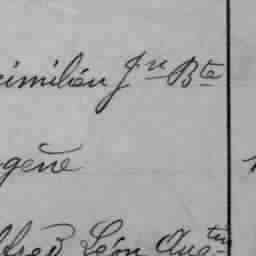 ximilien Jn Bte
gène
lfred Léon Augtin